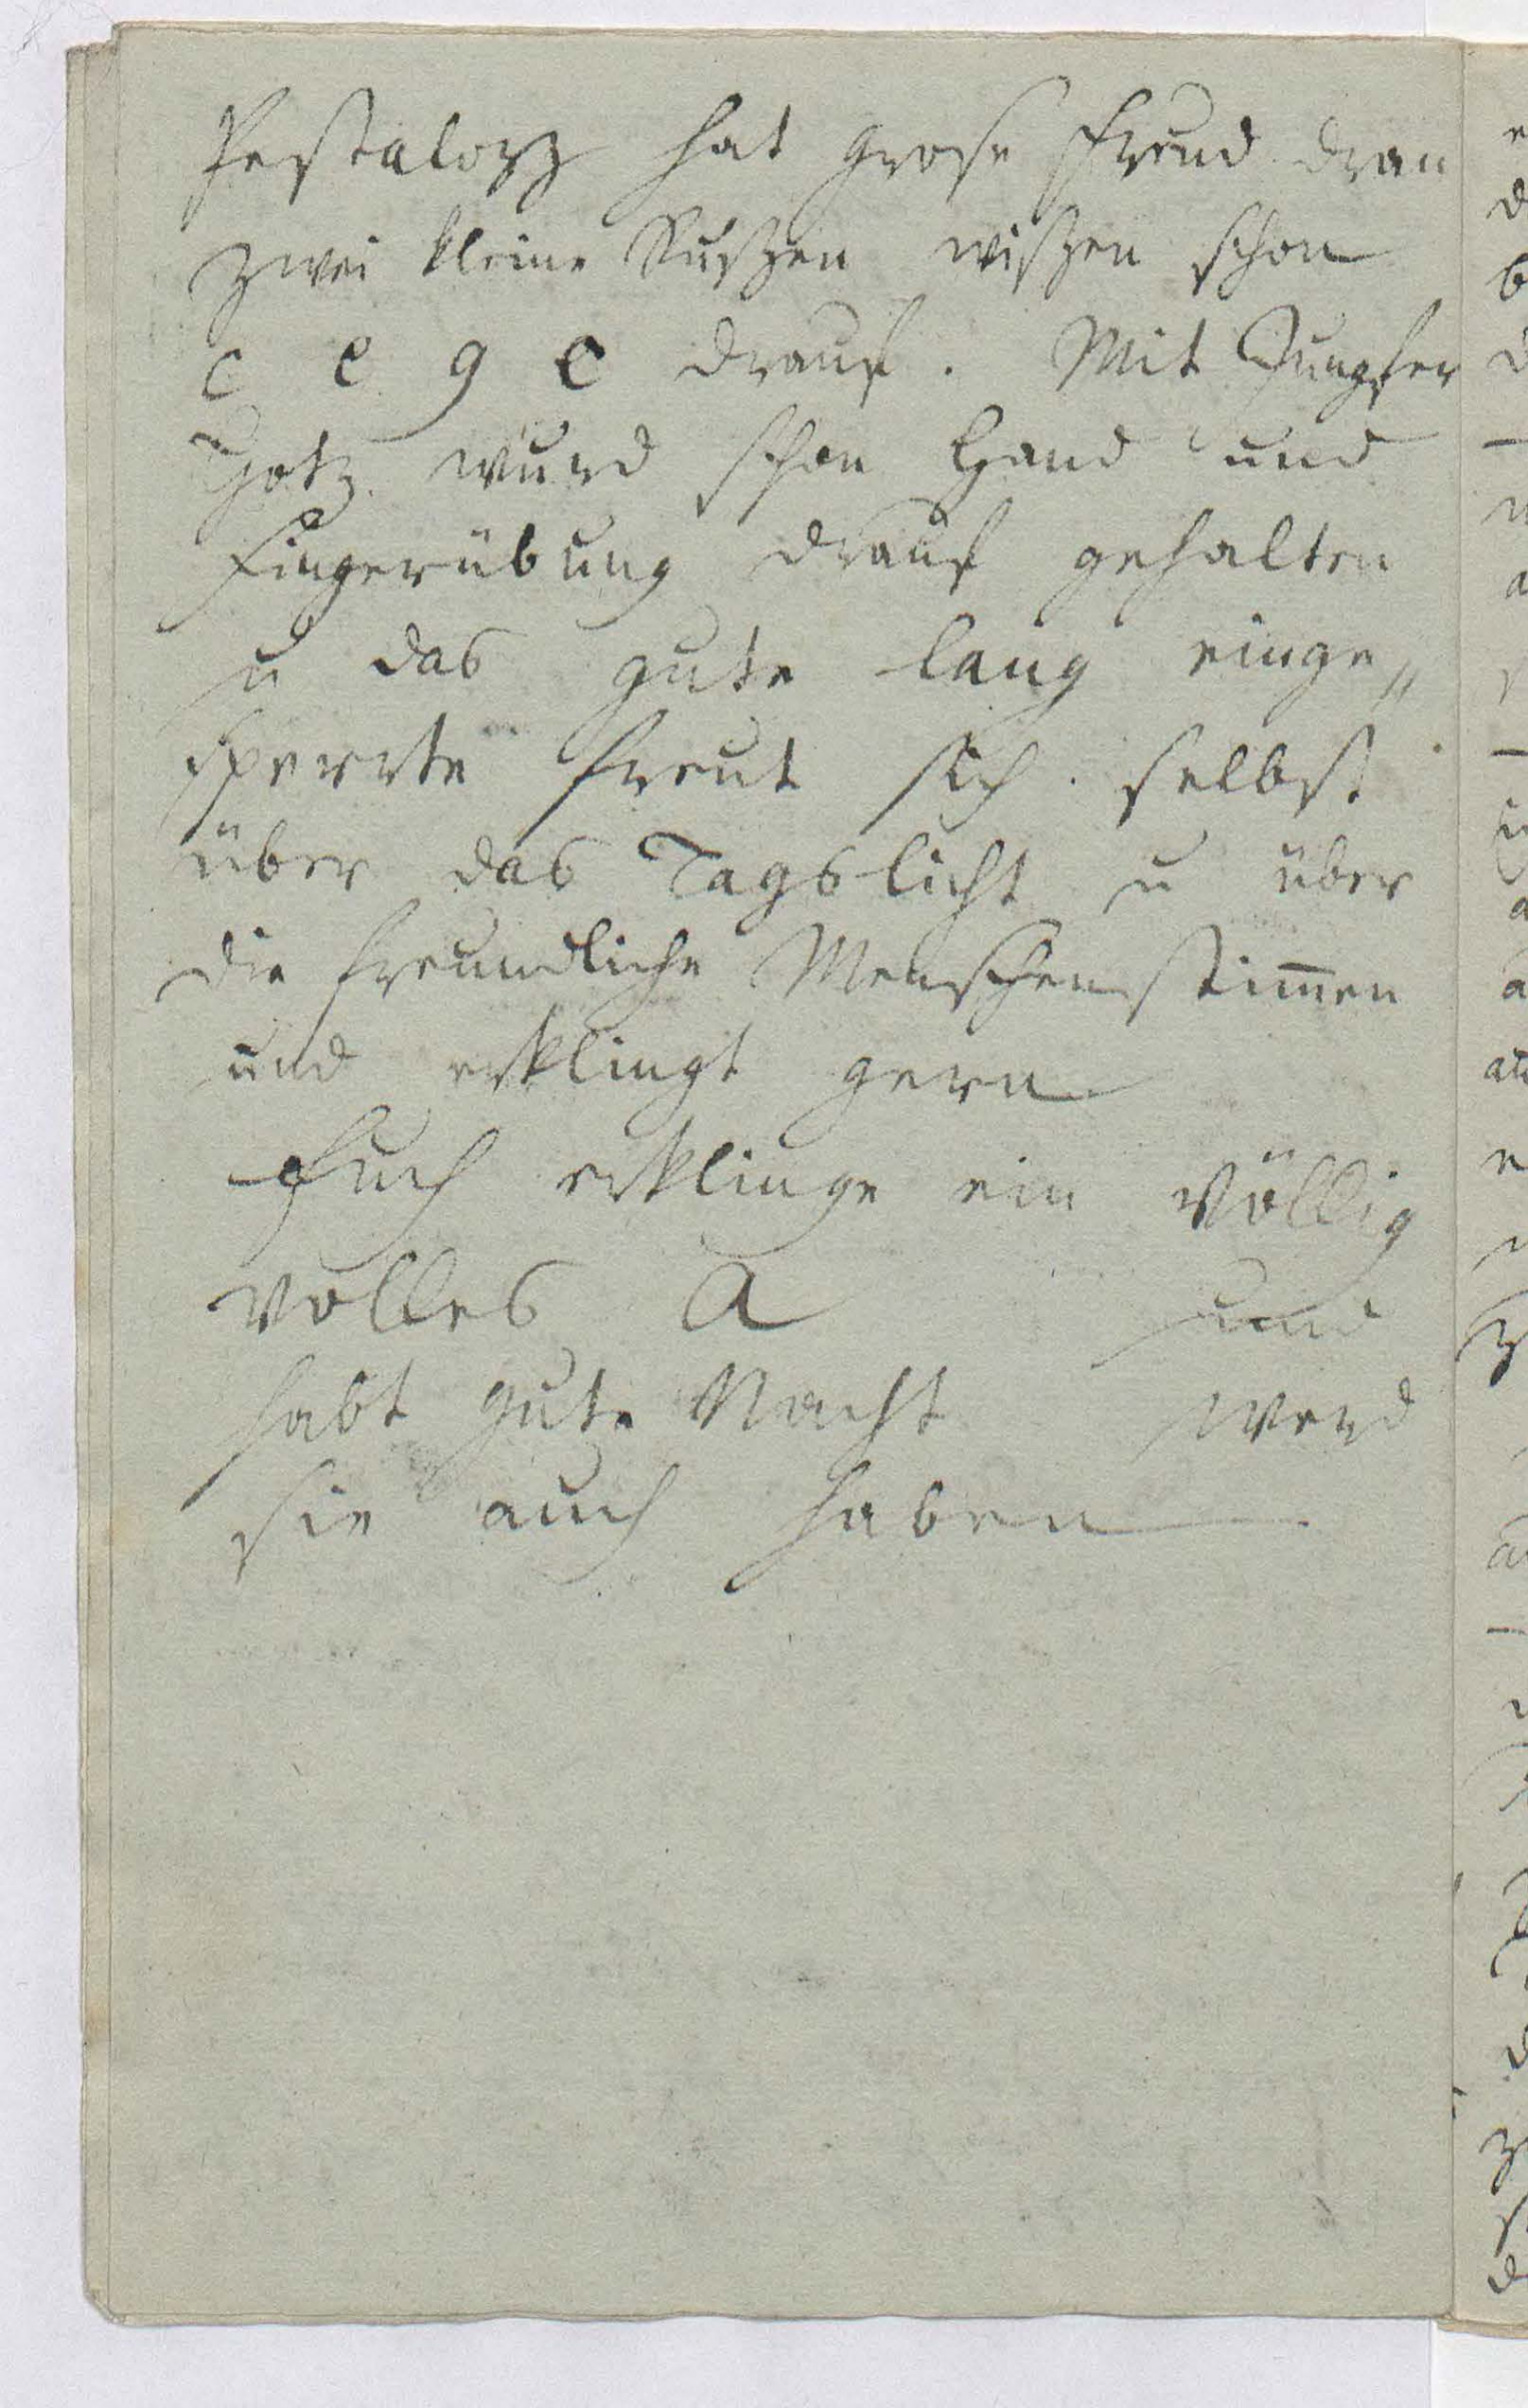 Pestalozz hat grose Freud dran
zwei kleine Russen wissen schon
c e g e drauf. Mit Jungfer
Gotz. wurd schon Hand und
Fingerübung drauf gehalten
u das gute lang einge„
sperrte freut sich selbst
über das Tagslicht u über
die freundliche Menschenstim̄en
und erklingt gern
Euch erklinge ein völlig
volles A und
habt gute Nacht werd
sie auch haben